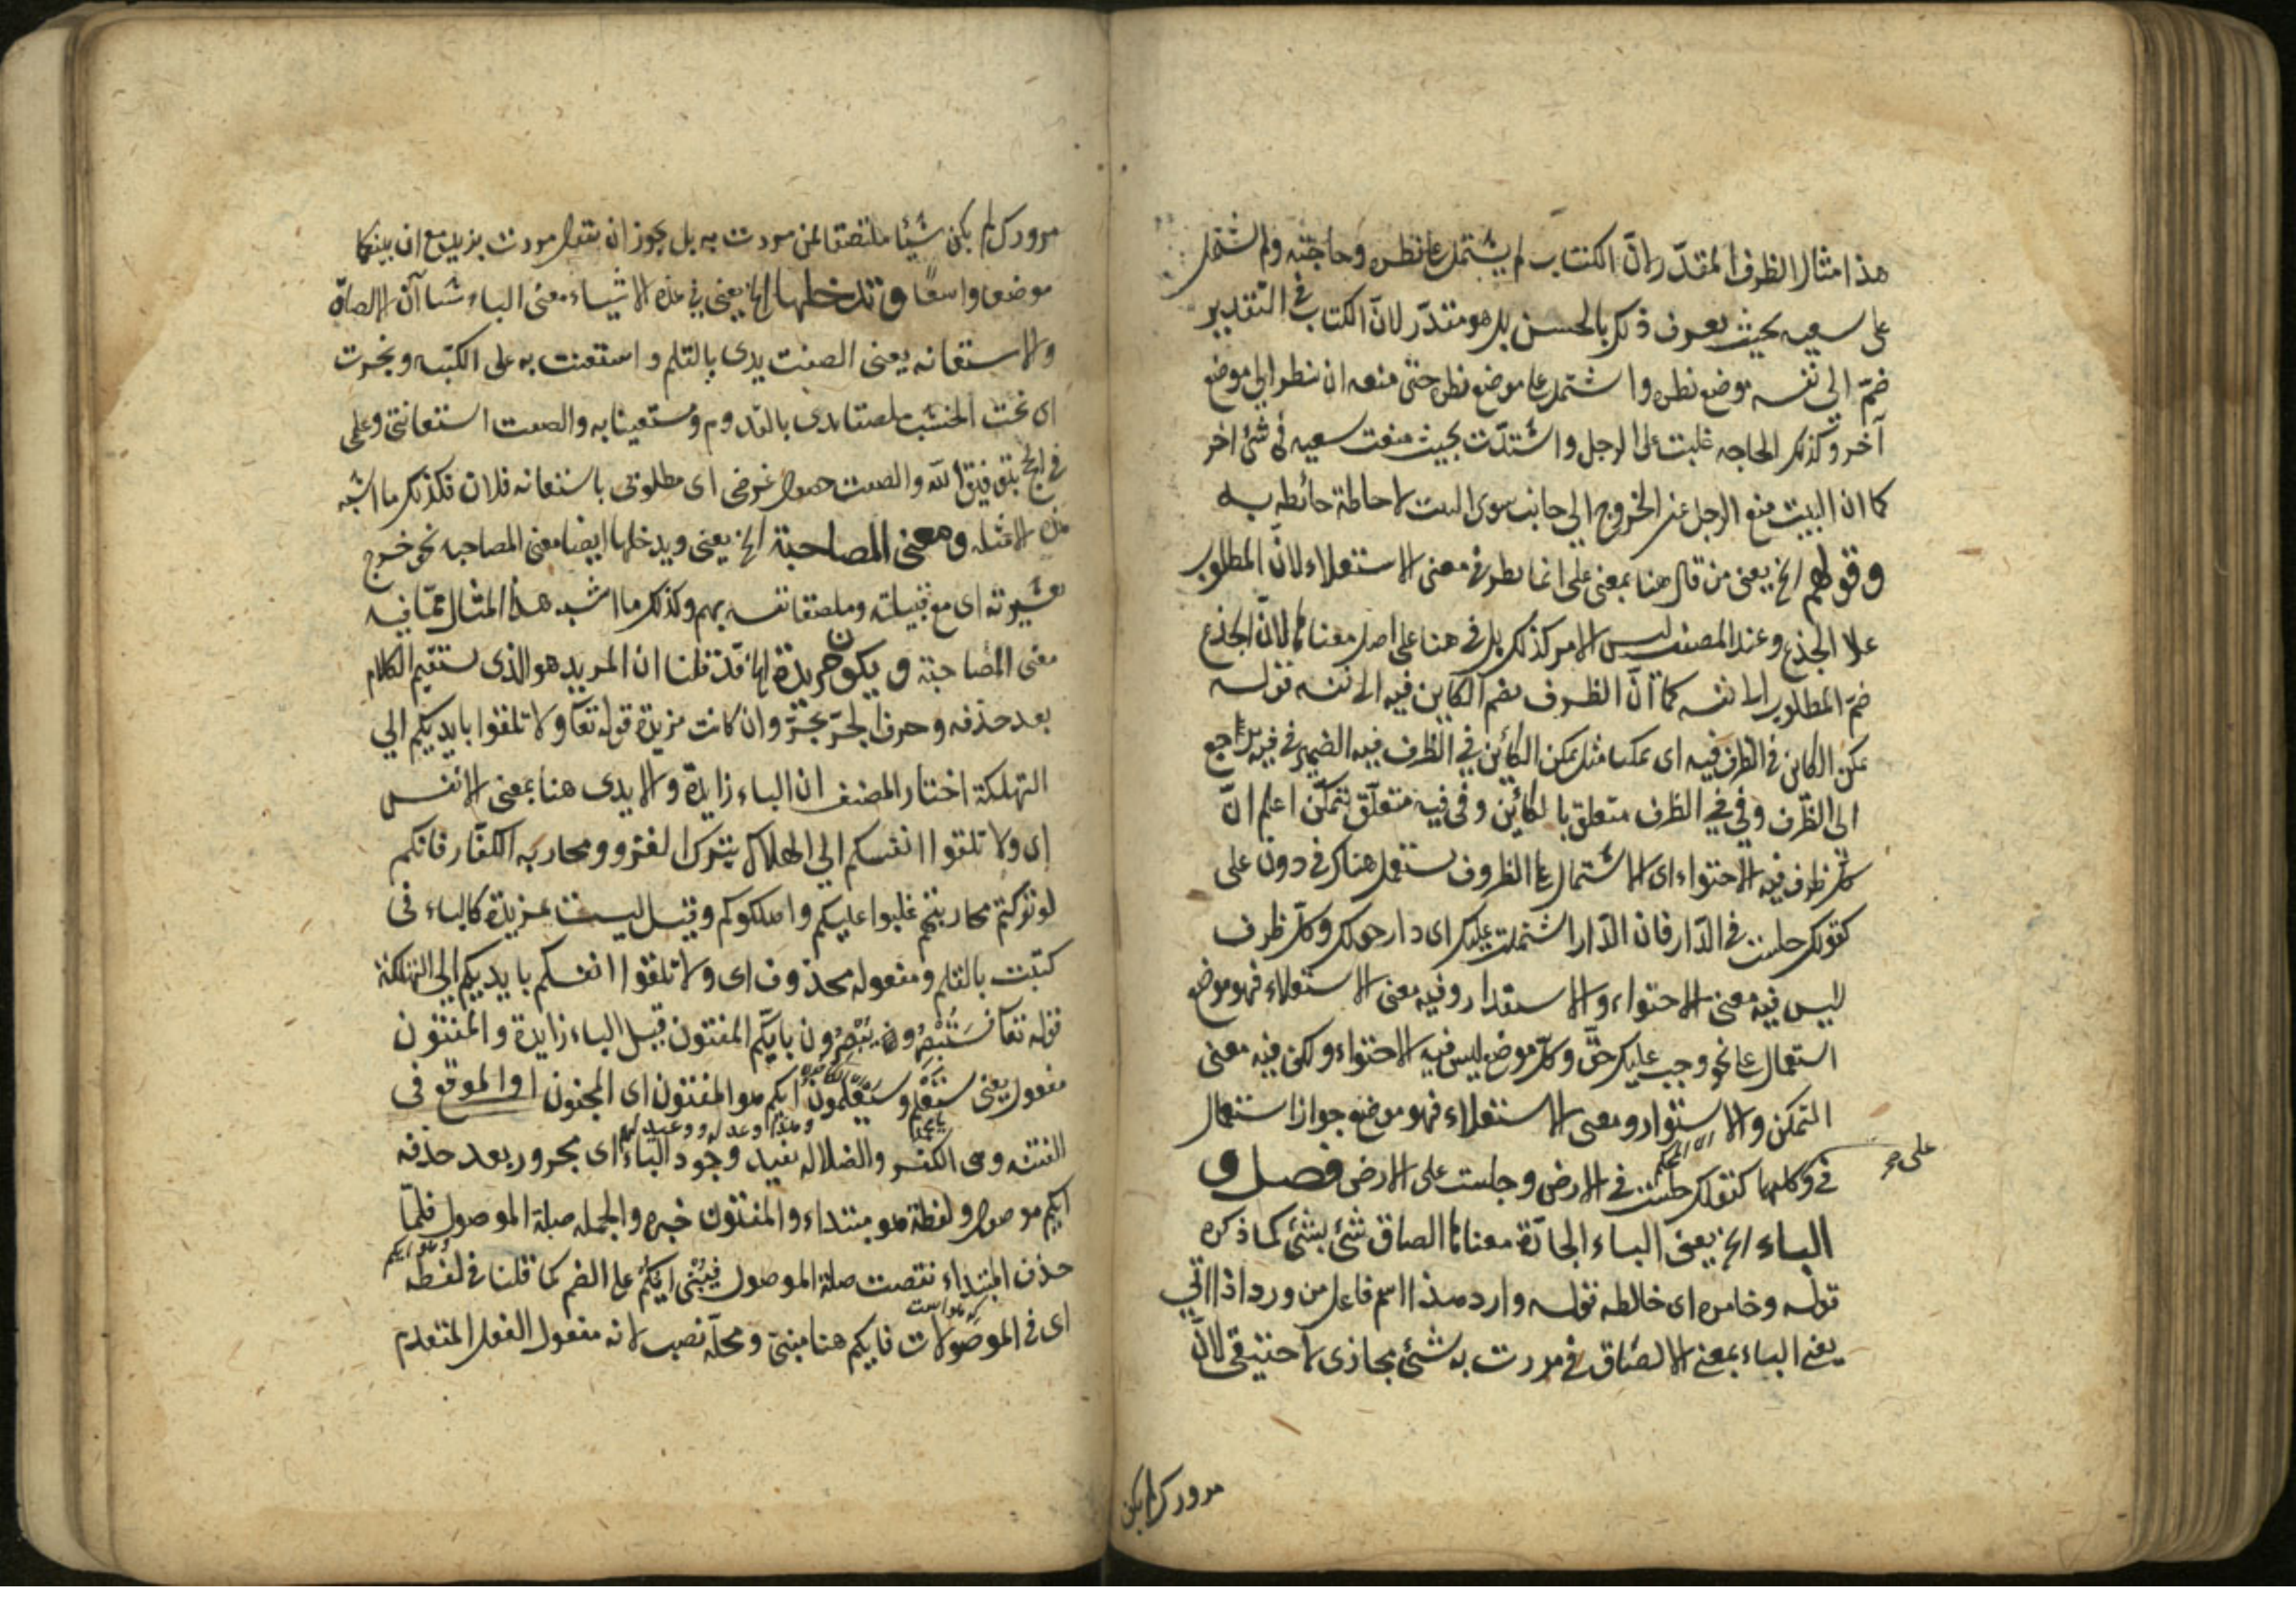 هذا مثال الظرف المقدّر لانّ الكتاب لم يشتمل على نظره وحاجته ولم تشتمل
على سعيه بحيث يعرف ذلك بالحسن بل هو مقدّر لانّ الكتاب في التقدير
ضمّ الى نفسه موضع نظره واشتمل على موضع نظره حتى منعه ان ينظر الى موضع
آخر وكذلك الحاجه غلبت على الرجل واشتدّت بحيث منعت سعيه في شئ اخر
كما ان البيت منع الرجل عن الخروج الى جانب سوى البيت لاحاطة حائطه به
وقولهم الخ يعنى من قال هنا بمعنى على انما نظر في معنى الاستعلاء لانّ المطلوب
علا الجذع وعند المصنف ليس الامر كذلك بل في هنا على اصل معناها لانّ الجذع
ضمّ المطلوب الى نفسه كما انّ الظرف يضم الكاين فيه الى نفسه قوله
تمكن الكاين في الظرف فيه اى تمكنا مثل تمكن الكائن في الظرف فيه الضمير في فيه راجع
الى الظّرف وفي في الظرف متعلق بالكائن وفي فيه متعلّق بتمكّن اعلم انّ
كل ظرف فيه الاحتواء اى الاشتمال على الظروف يستعمل هناك في دون على
كقولك جلست في الدّار فان الدّار اشتملت عليك اى دار حولك وكلّ ظرف
ليس فيه معنى الاحتواء والاستقرار وفيه معنى الاستعلاء فهو موضع
استعمال على نحو وجب عليك حقّ وكلّ موضع ليس فيه الاحتواء ولكن فيه معنى
التمكن والاستقرار ومعنى الاستعلاء فهو موضع جواز استعمال
على ص
في وكليهما كقولك جلست في الارض وجلست على الارض فصل و
الباء الخ يعنى الباء الجارّة معناها الصاق شئ بشئ كما ذكره
قوله وخامره اى خالطه قوله وارد هذا اسم فاعل من ورد اذا اتي
يعنى الباء بمعنى الالصاق في مررت به شئ مجازى لا حقيقى لانّ
مرورك لم يكن
مرورك لم يكن شيئا ملتصقا لمن مررت به بل يجوز ان تقول مررت بزيد مع ان بينكما
موضعا واسعًا وتدخلها الخ يعنى في هذه الاشياء معنى الباء شيا آن الالصاق
والاستعانه يعنى الصقت يدى بالقلم واستعنت به على الكتبه ونجرت
اى نحت الخشب ملصقا يدى بالقدوم ومستعينا به والصقت استعانتي وعلى
في الحج بتوفيق الله والصقت حصول غرضى اى مطلوبى باستعانه فلان فكذلك ما اشبه
هذه الامثله ومعنى المصاحبة الخ يعنى ويدخلها ايضا معنى المصاحبه نحو خرج
بعشيرته اى مع قبيلته وملصقا نفسه بهم وكذلك ما اشبه هذا المثال ممّا فيه
معنى المصاحبة ويكون مزيدة الخ قد قلنا ان المزيد هو الذى يستقيم الكلام
بعد حذفه وحرف الجرّ يجرّ وان كانت مزيدة قوله تعا ولا تلقوا بايديكم الى
التهلكة اختار المصنف ان الباء زايدة والايدى هنا بمعنى الانفس
اى ولا تلقوا انفسكم الى الهلاك بترك الغزو ومحاربه الكفّار فانكم
لو تركتم محاربتهم غلبوا عليكم واهلكوكم وقيل ليست بمزيدة كالباء في
كتبت بالقلم ومفعوله محذوف اى ولا تلقوا انفسكم بايديكم الى التهلكة
قوله تعا فَسَتُبْصِرُ ويُبْصِرُون بايّكم المفتون قيل الباء زايدة والمفتون
مفعول يعنى ستعلم وسيعلمون ايكم هو المفتون اى المجنون او الموقع في
الفتنه وهى الكفر والضلاله يفيد وجود الباء اى مجرور بعد حذفه
وهذا وعد له ووعيد لهم
ايكم موصول ولفظة هو مبتداء والمفتون خبره والجمله صلة الموصول فلمّا
حذف المبتداء نقصت صلة الموصول فيُبْنى ايّكم على الضم كما قلنا في لفظه
وهو ايكم
اى في الموصولات فايكم هنا مبنىّ ومحلّه نصب لانه مفعول الفعل المتقدم